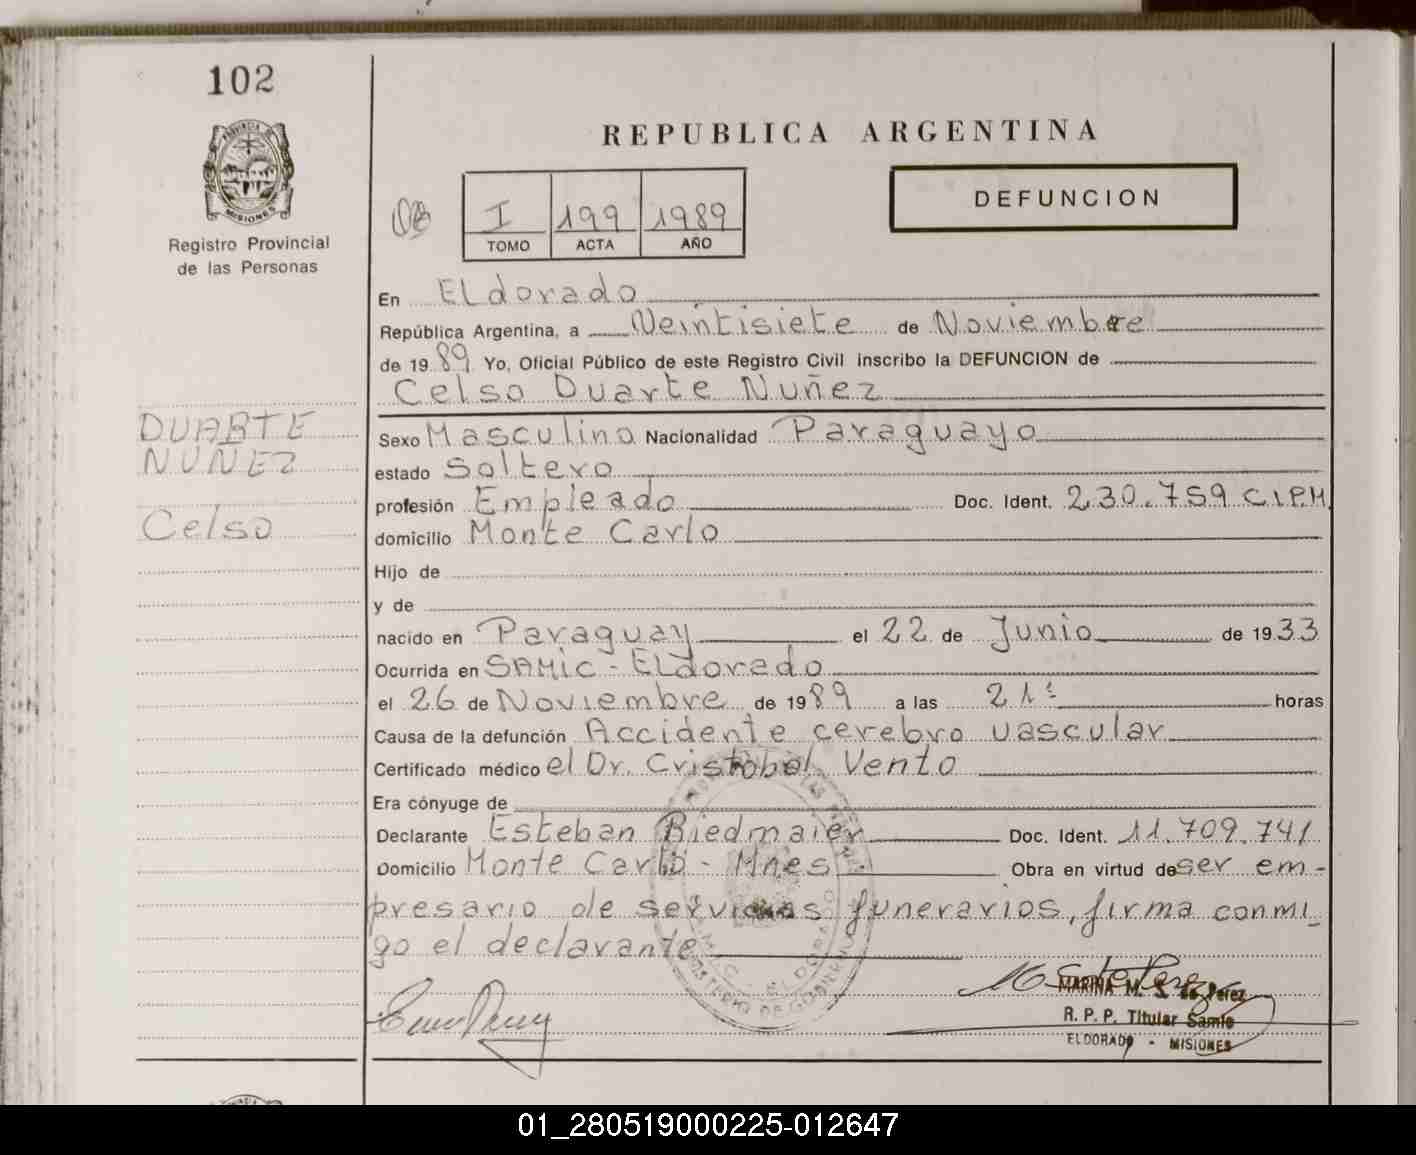 102
REPUBLICA ARGENTINA
DEFUNCION
MISIONES
Registro Provincial
de las Personas
I 199 1989
TOMO ACTA AÑO
En Eldorado
República Argentina, a Veintisiete de Noviembre
de 19 89 Yo, Oficial Público de este Registro Civil inscribo la DEFUNCION de
Celso Duarte Nuñez
DUARTE
NUÑEZ
Celso
Sexo Masculino Nacionalidad Paraguayo
estado Soltero
profesión Empleado Doc. Ident. 230.759 C.I.P.M
domicilio Monte Carlo
Hijo de
y de
nacido en Paraguay el 22 de Junio de 19 33
Ocurrida en SAMIC - Eldorado
el 26 de Noviembre de 19 89 a las 21 horas
Causa de la defunción Accidente cerebro vascular
Certificado médico el Dr. Cristobal Vento
Era cónyuge de
Declarante Esteban Biedmaier Doc. Ident. 11.709.741
Domicilio Monte Carlo - Mnes Obra en virtud de ser em-
presario de servicios funerarios, firma conmi-
go el declarante
MARINA M. S. de Perez
R. P. P. Titular Samic
ELDORADO - MISIONES
01_280519000225-012647